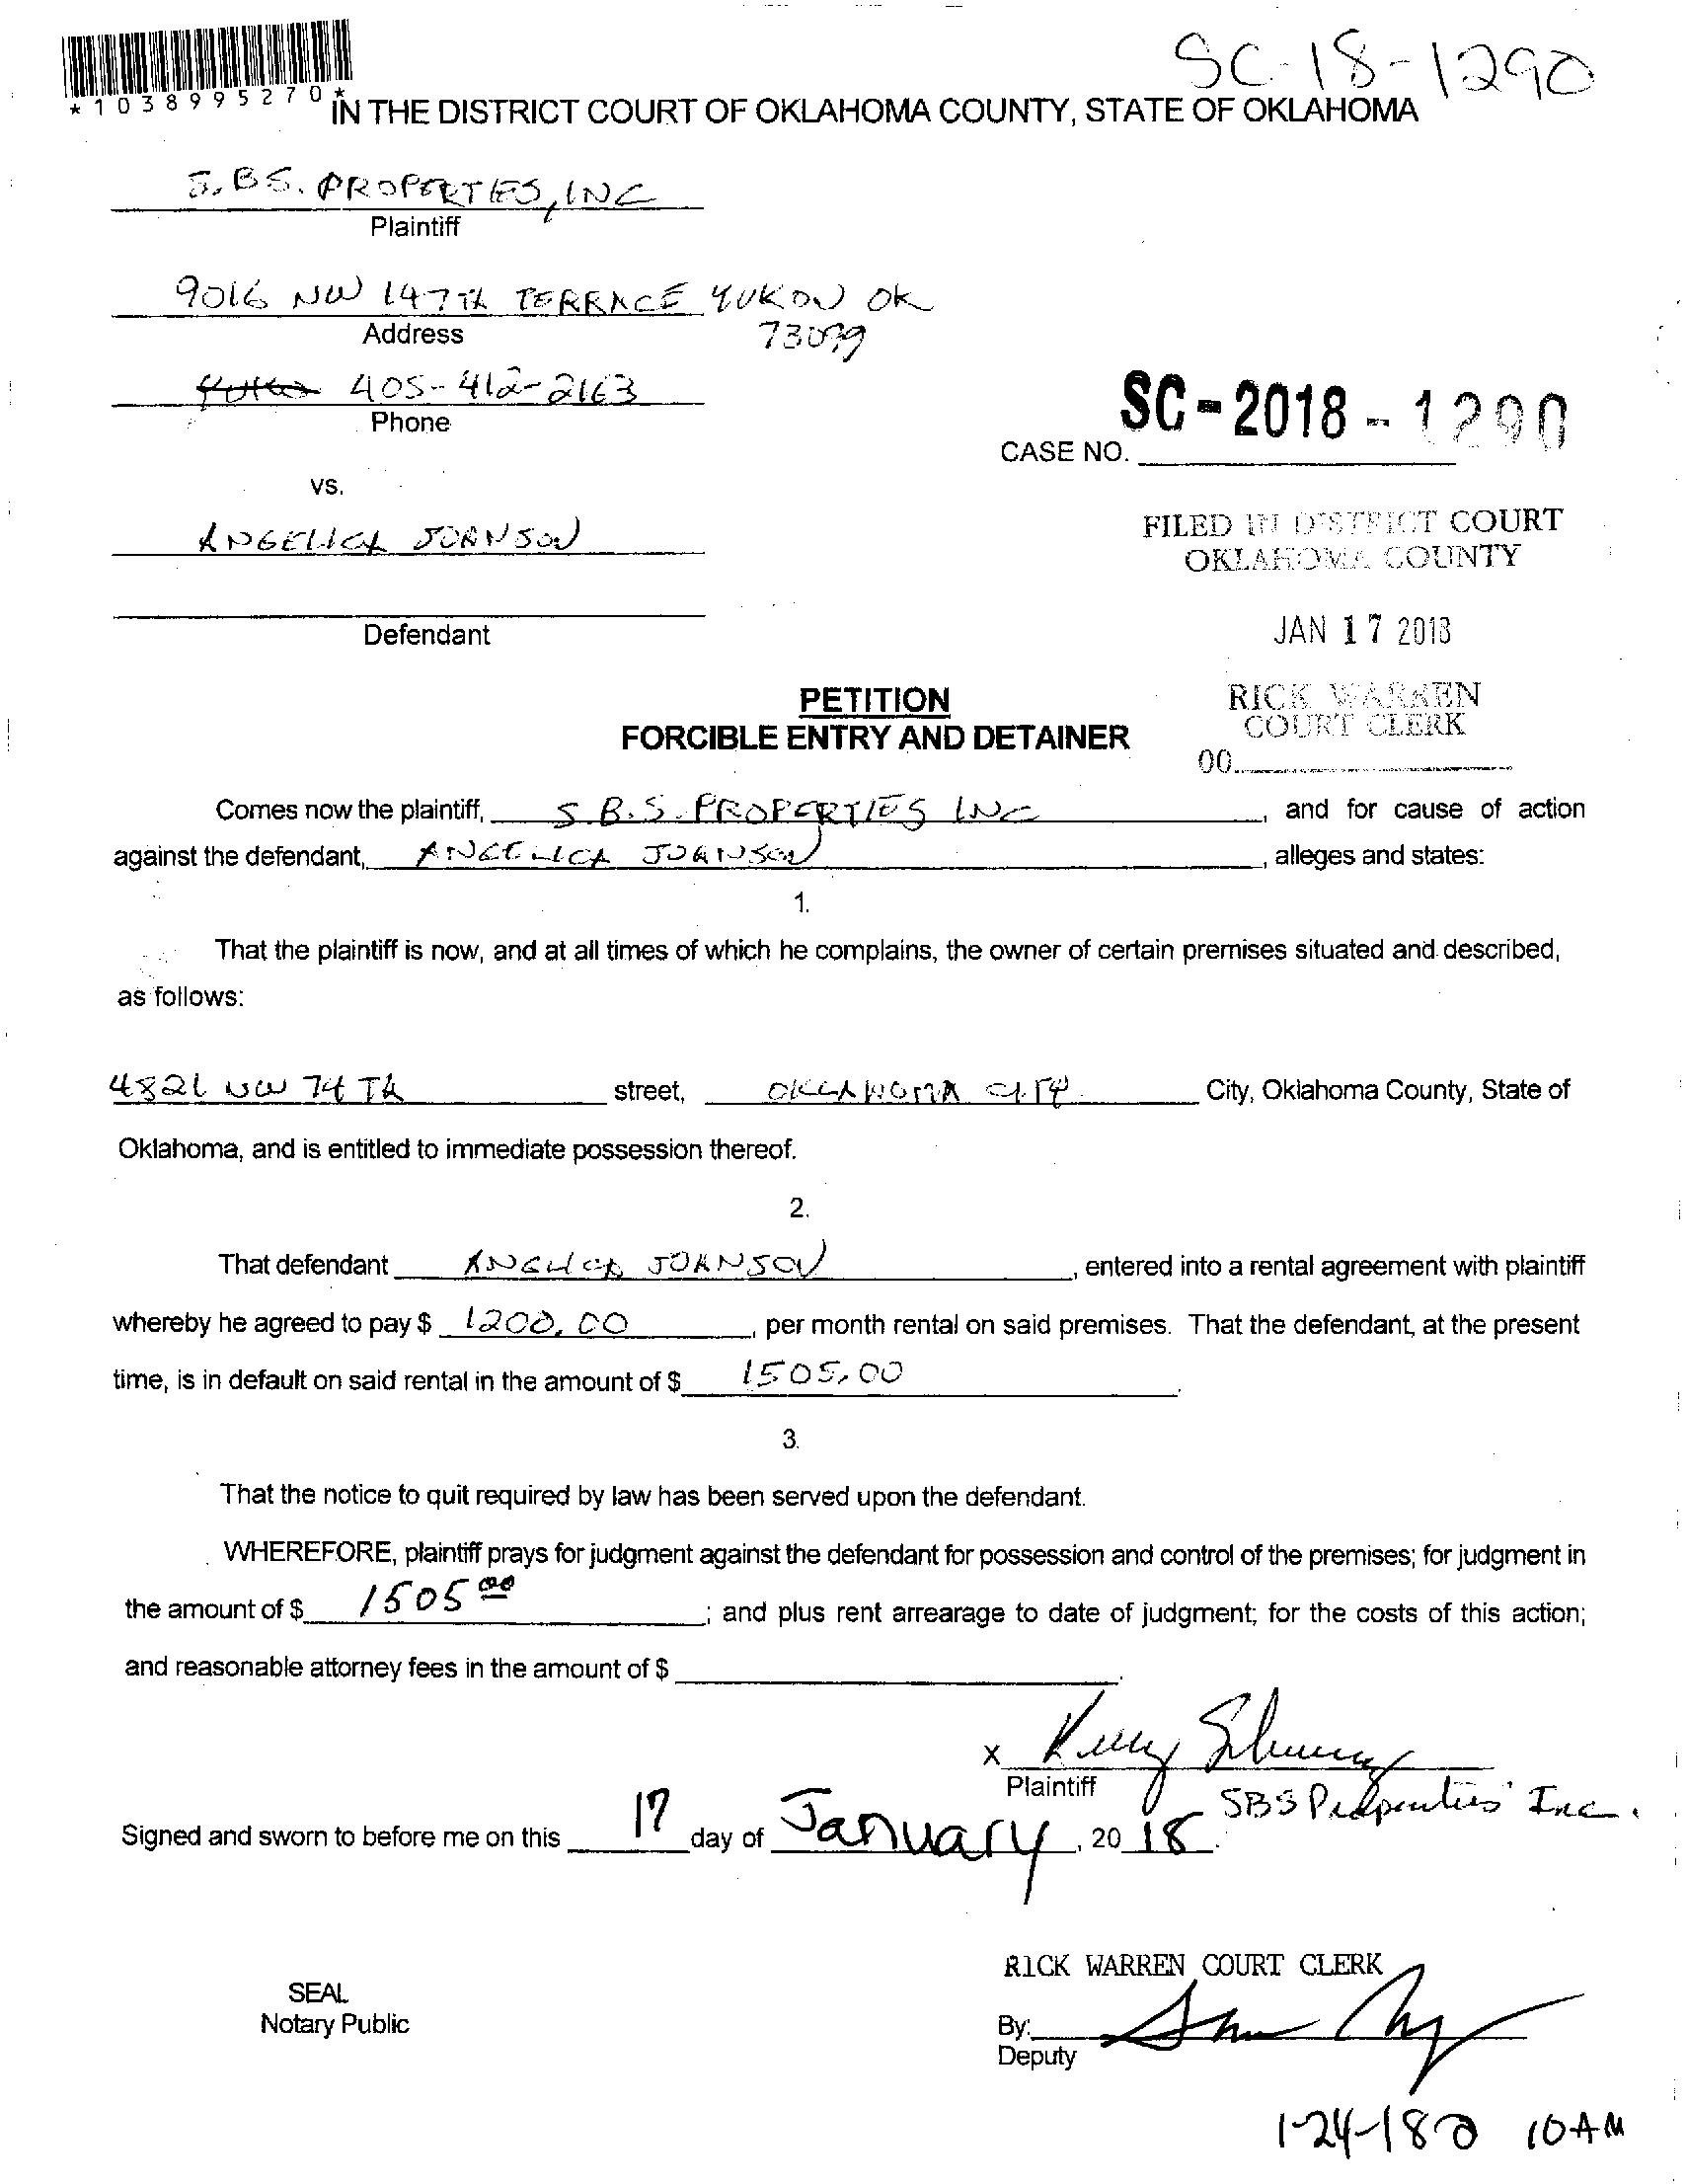 SC-18-1290
*1038995270*
IN THE DISTRICT COURT OF OKLAHOMA COUNTY, STATE OF OKLAHOMA
S.B.S. PROPERTIES, INC
Plaintiff
9016 NW 147TH TERRACE YUKON OK
73099
Address
405-412-2163
Phone
SC-2018-1290
CASE NO.
vs.
ANGELICA JOHNSON
FILED IN DISTRICT COURT
OKLAHOMA COUNTY
Defendant
JAN 17 2018
PETITION
FORCIBLE ENTRY AND DETAINER
RICK WARREN
COURT CLERK
00
Comes now the plaintiff, S.B.S. PROPERTIES INC, and for cause of action
against the defendant, ANGELICA JOHNSON, alleges and states:
1.
That the plaintiff is now, and at all times of which he complains, the owner of certain premises situated and described,
as follows:
4821 NW 74 TH street, OKLAHOMA CITY City, Oklahoma County, State of
Oklahoma, and is entitled to immediate possession thereof.
2.
That defendant ANGLICA JOHNSON, entered into a rental agreement with plaintiff
whereby he agreed to pay $ 1200.00, per month rental on said premises. That the defendant, at the present
time, is in default on said rental in the amount of $ 1505.00.
3.
That the notice to quit required by law has been served upon the defendant.
WHEREFORE, plaintiff prays for judgment against the defendant for possession and control of the premises; for judgment in
the amount of $ 1505 00; and plus rent arrearage to date of judgment; for the costs of this action;
and reasonable attorney fees in the amount of $.
x
Plaintiff
SBS Properties Inc.
Signed and sworn to before me on this 17 day of January, 20 18.
RICK WARREN COURT CLERK
SEAL
Notary Public
By:
Deputy
1-24-18@ 10AM